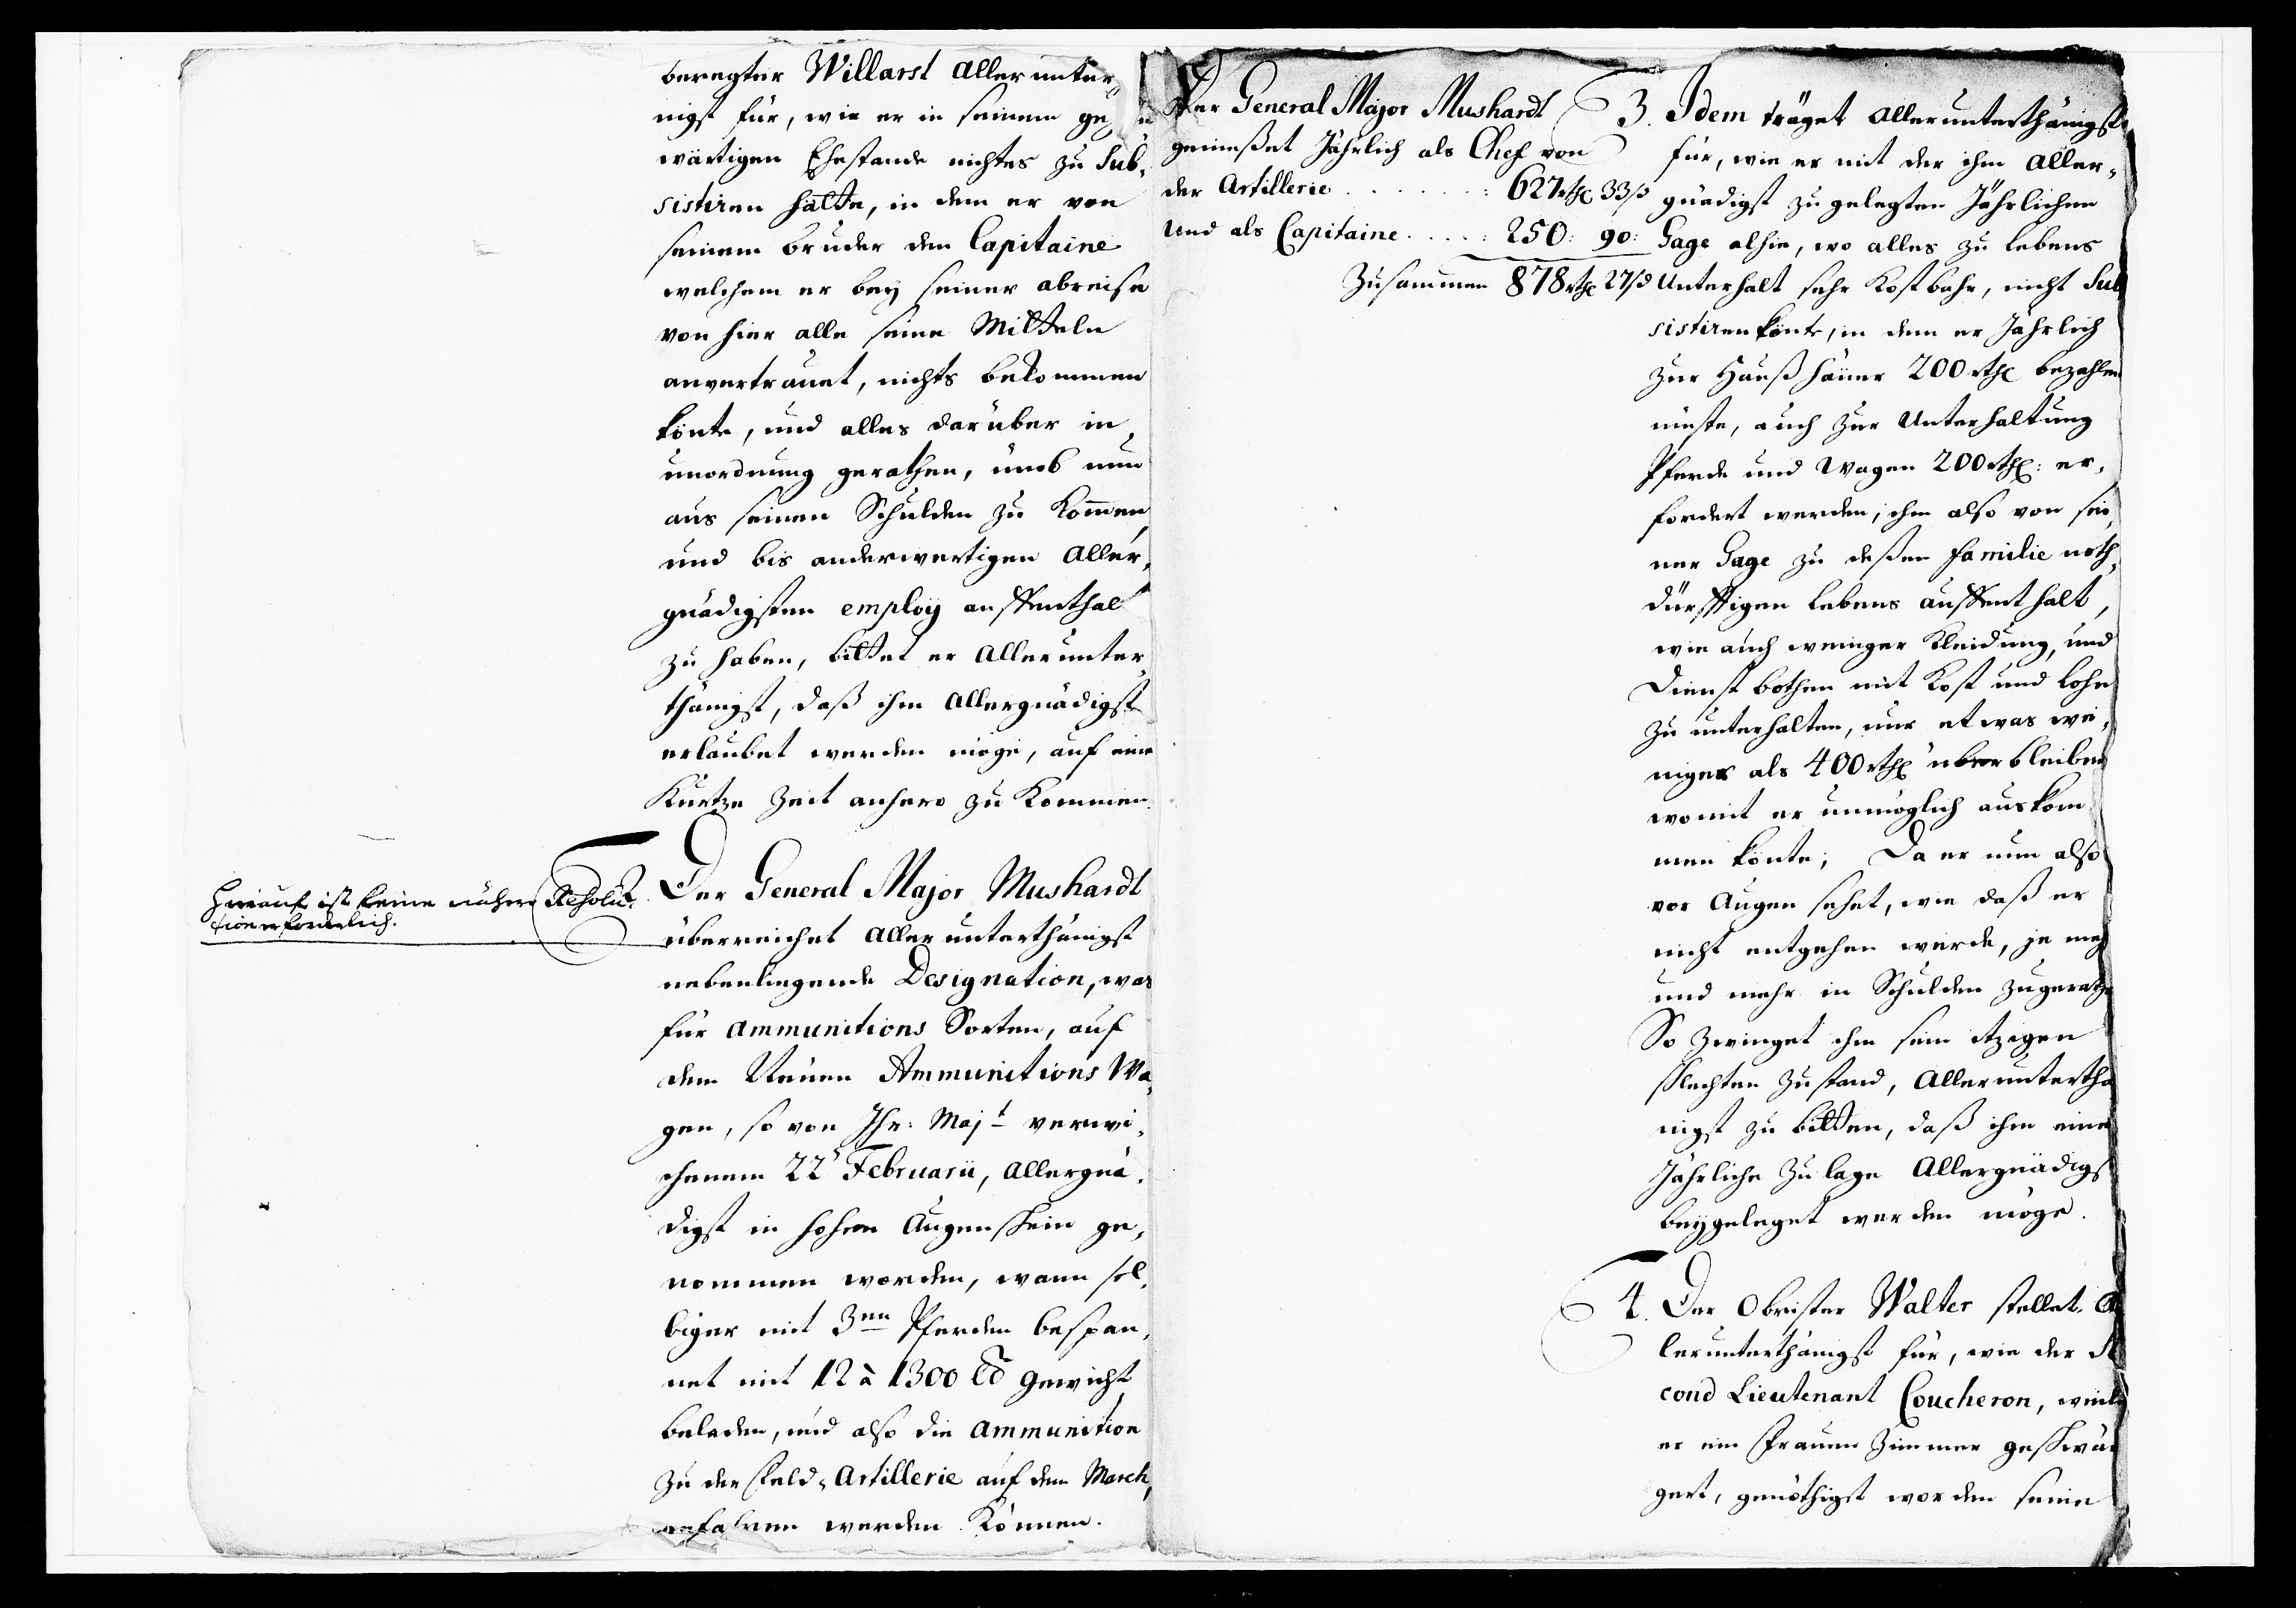 beregter Willarst allerunter,
nigst für, wie er in seinem ge
wärtigen Ehestande nichtes zu Sub,
sistiren hätte, in dem er von
seinem bruder dem Capitaine
welchem er bey seiner abreise
von hier alle seine Mitteln
anvertrauet, nichts bekommen
könte, und alles darüber in
unordnung gerathen, umb nun
aus seinen Schulden zu kom̄en
und bis anderwertigen Aller,
gnädigsten employ auffenthalt
zu haben, bittet er Allerunter,
thänigst, daß ihm Allergnädigst
erlaubet werden möge, auf eine
Kurtze Zeit anhero zu Kommen.
Hierauf ist keine nähere Resolu-
tion erforderlich.
2. Der General Major Mushardt
überreichet Allerunterthänigst
nebenliegende Designation, was
für ammunitions Sorten, auf
dem Neuen Ammunitions Wa,
gen, so von Ihr: Majt verwi,
chenem 22t Februarii, Allergnä,
digst in hohen Augenschein ge,
nommen worden, wann sel,
biger mit 3en Pferden bespan,
net mit 12 à 1300 ℔ gewicht
beladen, und also die ammunition
zu der Feld-Artillerie auf dem March,
gefahren werden können.
Der General Major Mushardt
genießet Jährlich als Chef von
der Artillerie . . . . . . . : 627 rthl 33 ß
und als Capitaine . . . . : 250: 90:
Zusammen 878 rthl 27 ß
3. Idem träget allerunterthänigst
für, wie er mit der ihm aller,
gnädigst zu gelegten Jährlichen
Gage alhie, wo alles zu lebens
Unterhalt sehr kostbahr, nicht Sub
sistiren könte, in dem er Jährlich
zur Hauß häuer 200 rthl bezahlen
müste, auch zur Unterhaltung
Pferde und Wagen 200 rthl: er,
fordert werden, ihm also von sei,
ner Gage zu deßen familie noth,
dürfftigen lebens auffenthalt,
wie auch weniger Kleidung, und
Dienst bothen mit Kost und lohn
zu unterhalten, nur etwas we,
niger als 400 rthl überbleiben
womit er unmöglich auskom
men könte; Da er nun also
vor Augen sehet, wie daß er
nicht entgehen werde, je meh
und mehr in Schulden zugerathe
So zwinget ihm sein itzigen
schlechten Zustand, Alleruntertha
nigst zu bitten, daß ihm eine
Jährliche Zulage Allergnädigs
beygeleget werden möge.
4. Der Obrister Walter stellet. Al
lerunterthänigst für, wie der Se
cond Lieutenant Coucheron, weile
er ein Frauen Zimmer geschwän
gert, genöthigt worden seine